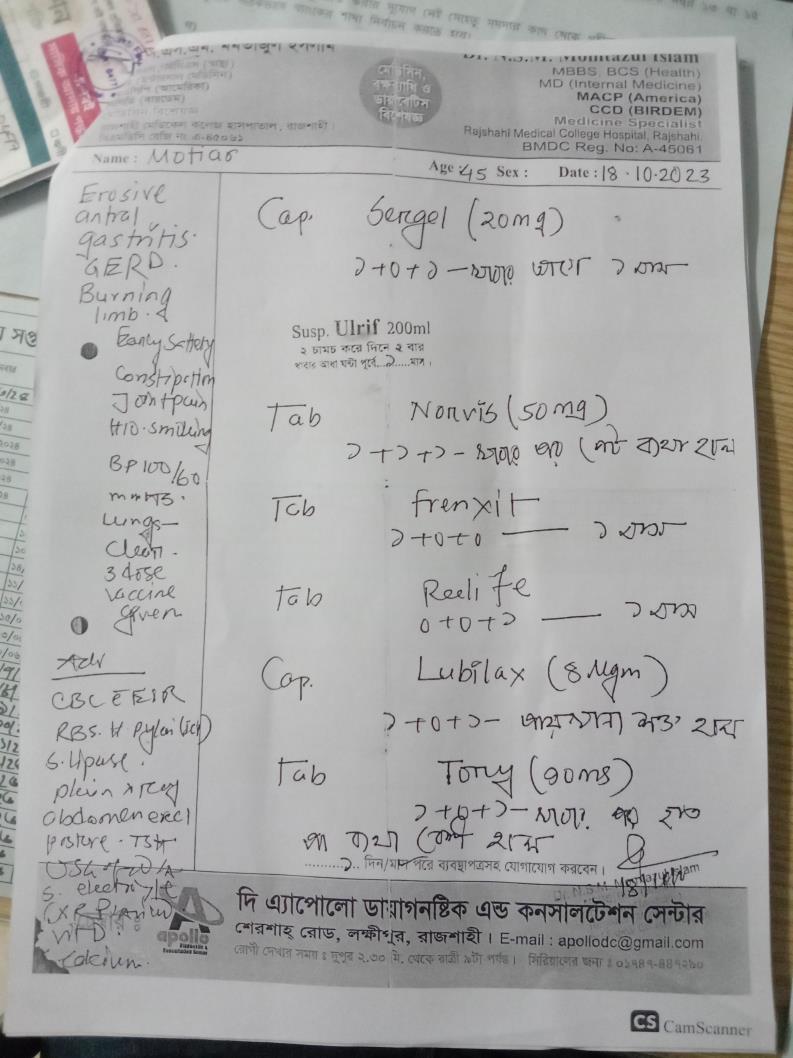 MBBS, BCS (Health)
MD (Internal Medicine)
MACP (America)
CCD (BIRDEM)
Medicine Specialist
Rajshahi Medical College Hospital, Rajshahi.
BMDC Reg. No: A-45061
মেডিসিন,
বক্ষব্যাধি ও
ডায়াবেটিস
বিশেষজ্ঞ
রাজশাহী মেডিকেল কলেজ হাসপাতাল, রাজশাহী।
Name : Motiar
Age : 45 Sex : Date : 18.10.2023
Erosive
antral
gastritis.
GERD.
Burning
limb.
Early Satiety
Constipation
Joint pain
H/O. smoking
BP 100/60
mmHg.
Lungs—
Clear.
3 dose
vaccine
given
Adv
CBC E ESR
RBS. H Pylori (ICT)
S. Lipase.
plain x ray
abdomen erect
posture. TSH
USG of W/A
S. electrolyte
CXR P/A view
Vit D.
Calcium.
Cap. Sergel (20mg)
১+০+১ — খাবার আগে ১ মাস
Susp. Ulrif 200ml
২ চামচ করে দিনে ২ বার
খাবার আধা ঘন্টা পূর্বে..১....মাস।
Tab Norvis (50mg)
১+১+১ - খাবার পর পেট ব্যথা হলে
Tab Frenxit
১+০+০ — ১ মাস
Tab Reelife
০+০+১ — ১ মাস
Cap. Lubilax (8 Mgm)
১+০+১ - পায়খানা কষা হলে
Tab Tory (90mg)
১+০+১ - খাবার পর
ব্যথা বেশী হলে
..........১.. দিন/মাস পরে ব্যবস্থাপত্রসহ যোগাযোগ করবেন।
apollo
দি এ্যাপোলো ডায়াগনষ্টিক এন্ড কনসালটেশন সেন্টার
শেরশাহ্ রোড, লক্ষীপুর, রাজশাহী । E-mail : apollodc@gmail.com
রোগী দেখার সময় : দুপুর ২.৩০ মি. থেকে রাত্রী ৯টা পর্যন্ত।
CS CamScanner